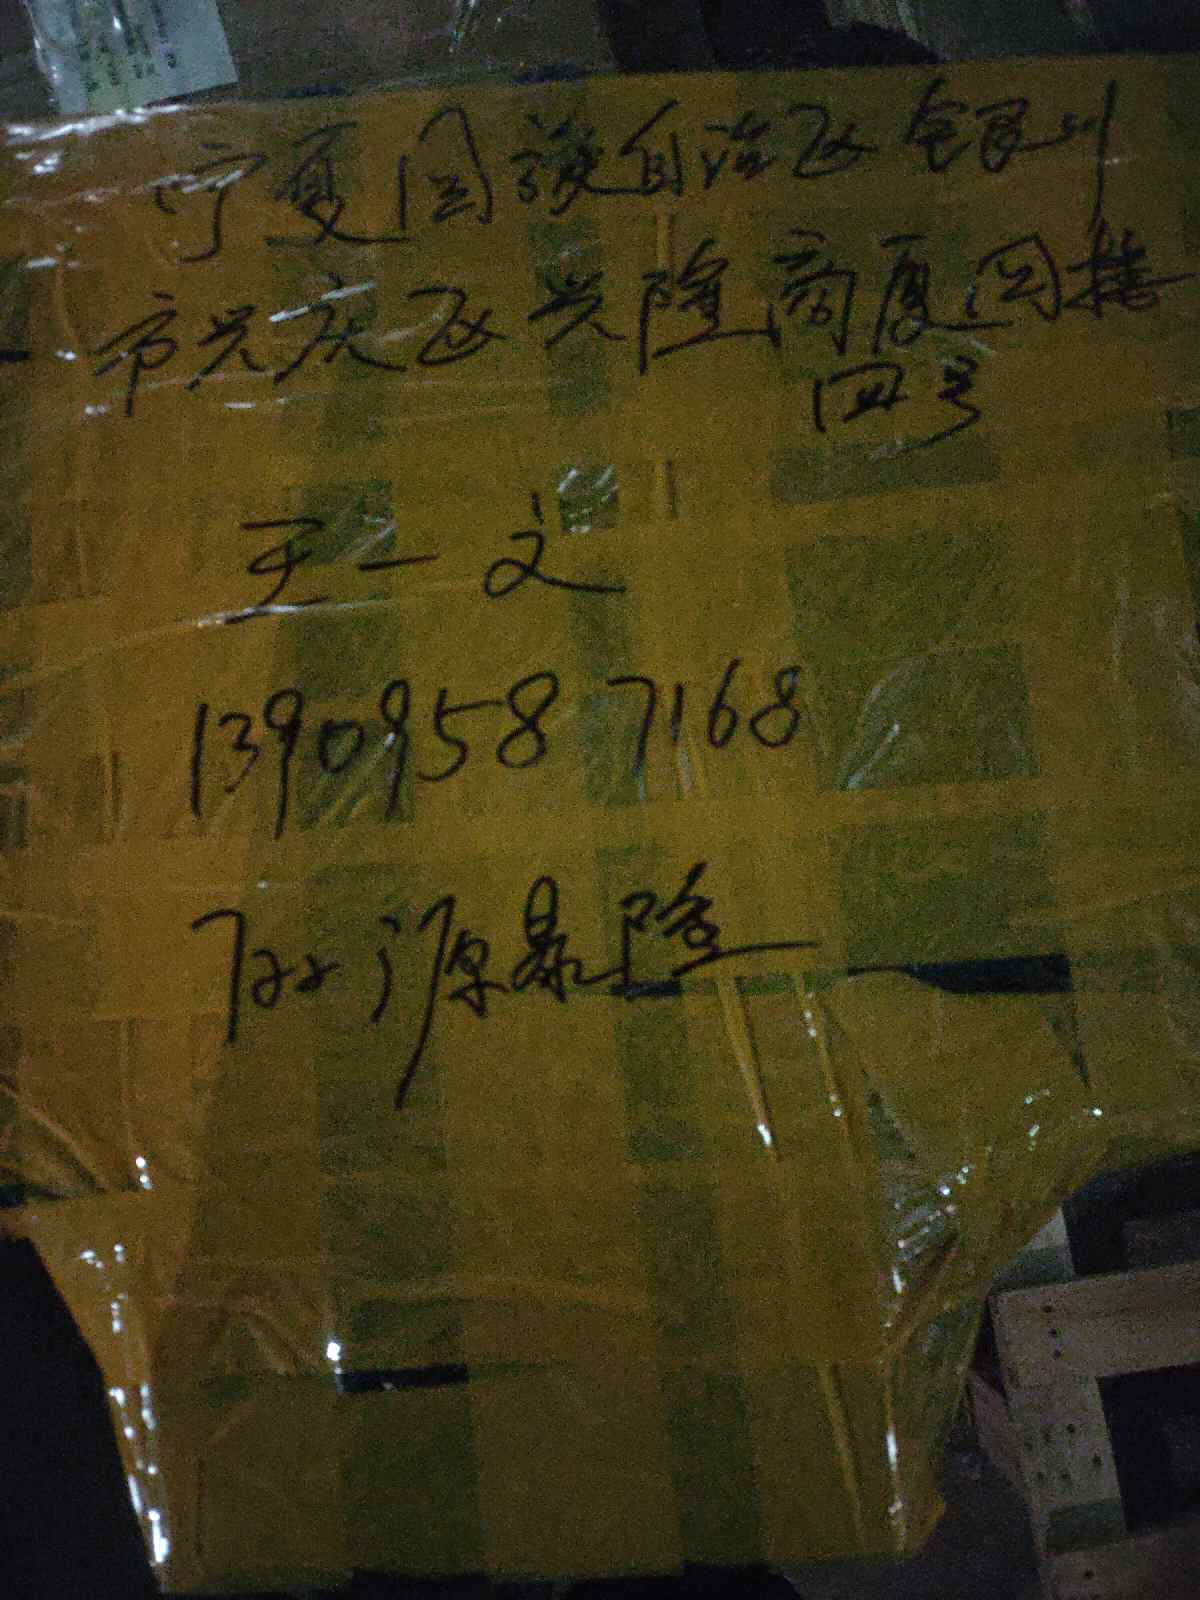 宁夏回族自治区银川
市兴庆区兴隆商厦四楼
四号
王一文
13909587168
源景隆